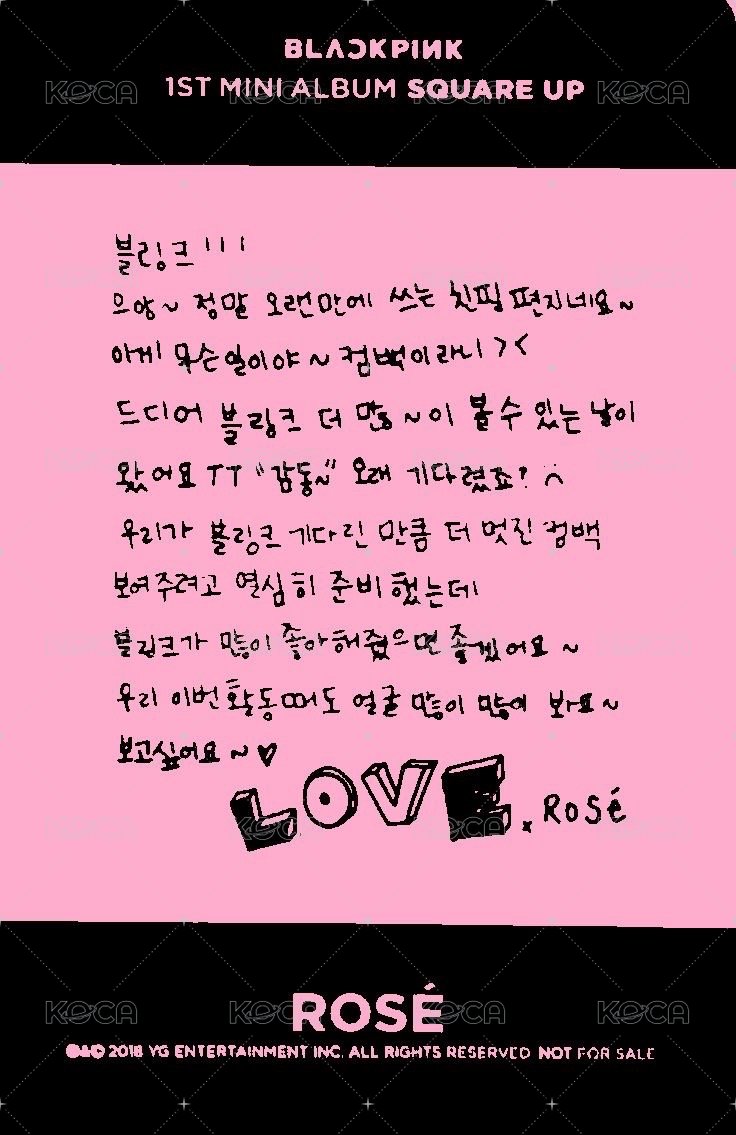 BLACKPINK
1ST MINI ALBUM SQUARE UP
블링크!!!
으아~ 정말 오랜만에 쓰는 친필 편지네요~
이게 무슨일이야~ 컴백이라니 ><
드디어 블링크 더 많~이 볼 수 있는 날이
왔어요 TT "감동~" 오래 기다렸죠? ㅠ
우리가 블링크 기다린 만큼 더 멋진 컴백
보여주려고 열심히 준비했는데
블링크가 많이 좋아해줬으면 좋겠어요~
우리 이번 활동때도 얼굴 많이 많이 봐요~
보고싶어요~♡
LOVE x Rosé
ROSÉ
℗&© 2018 YG ENTERTAINMENT INC. ALL RIGHTS RESERVED NOT FOR SALE
KOCA